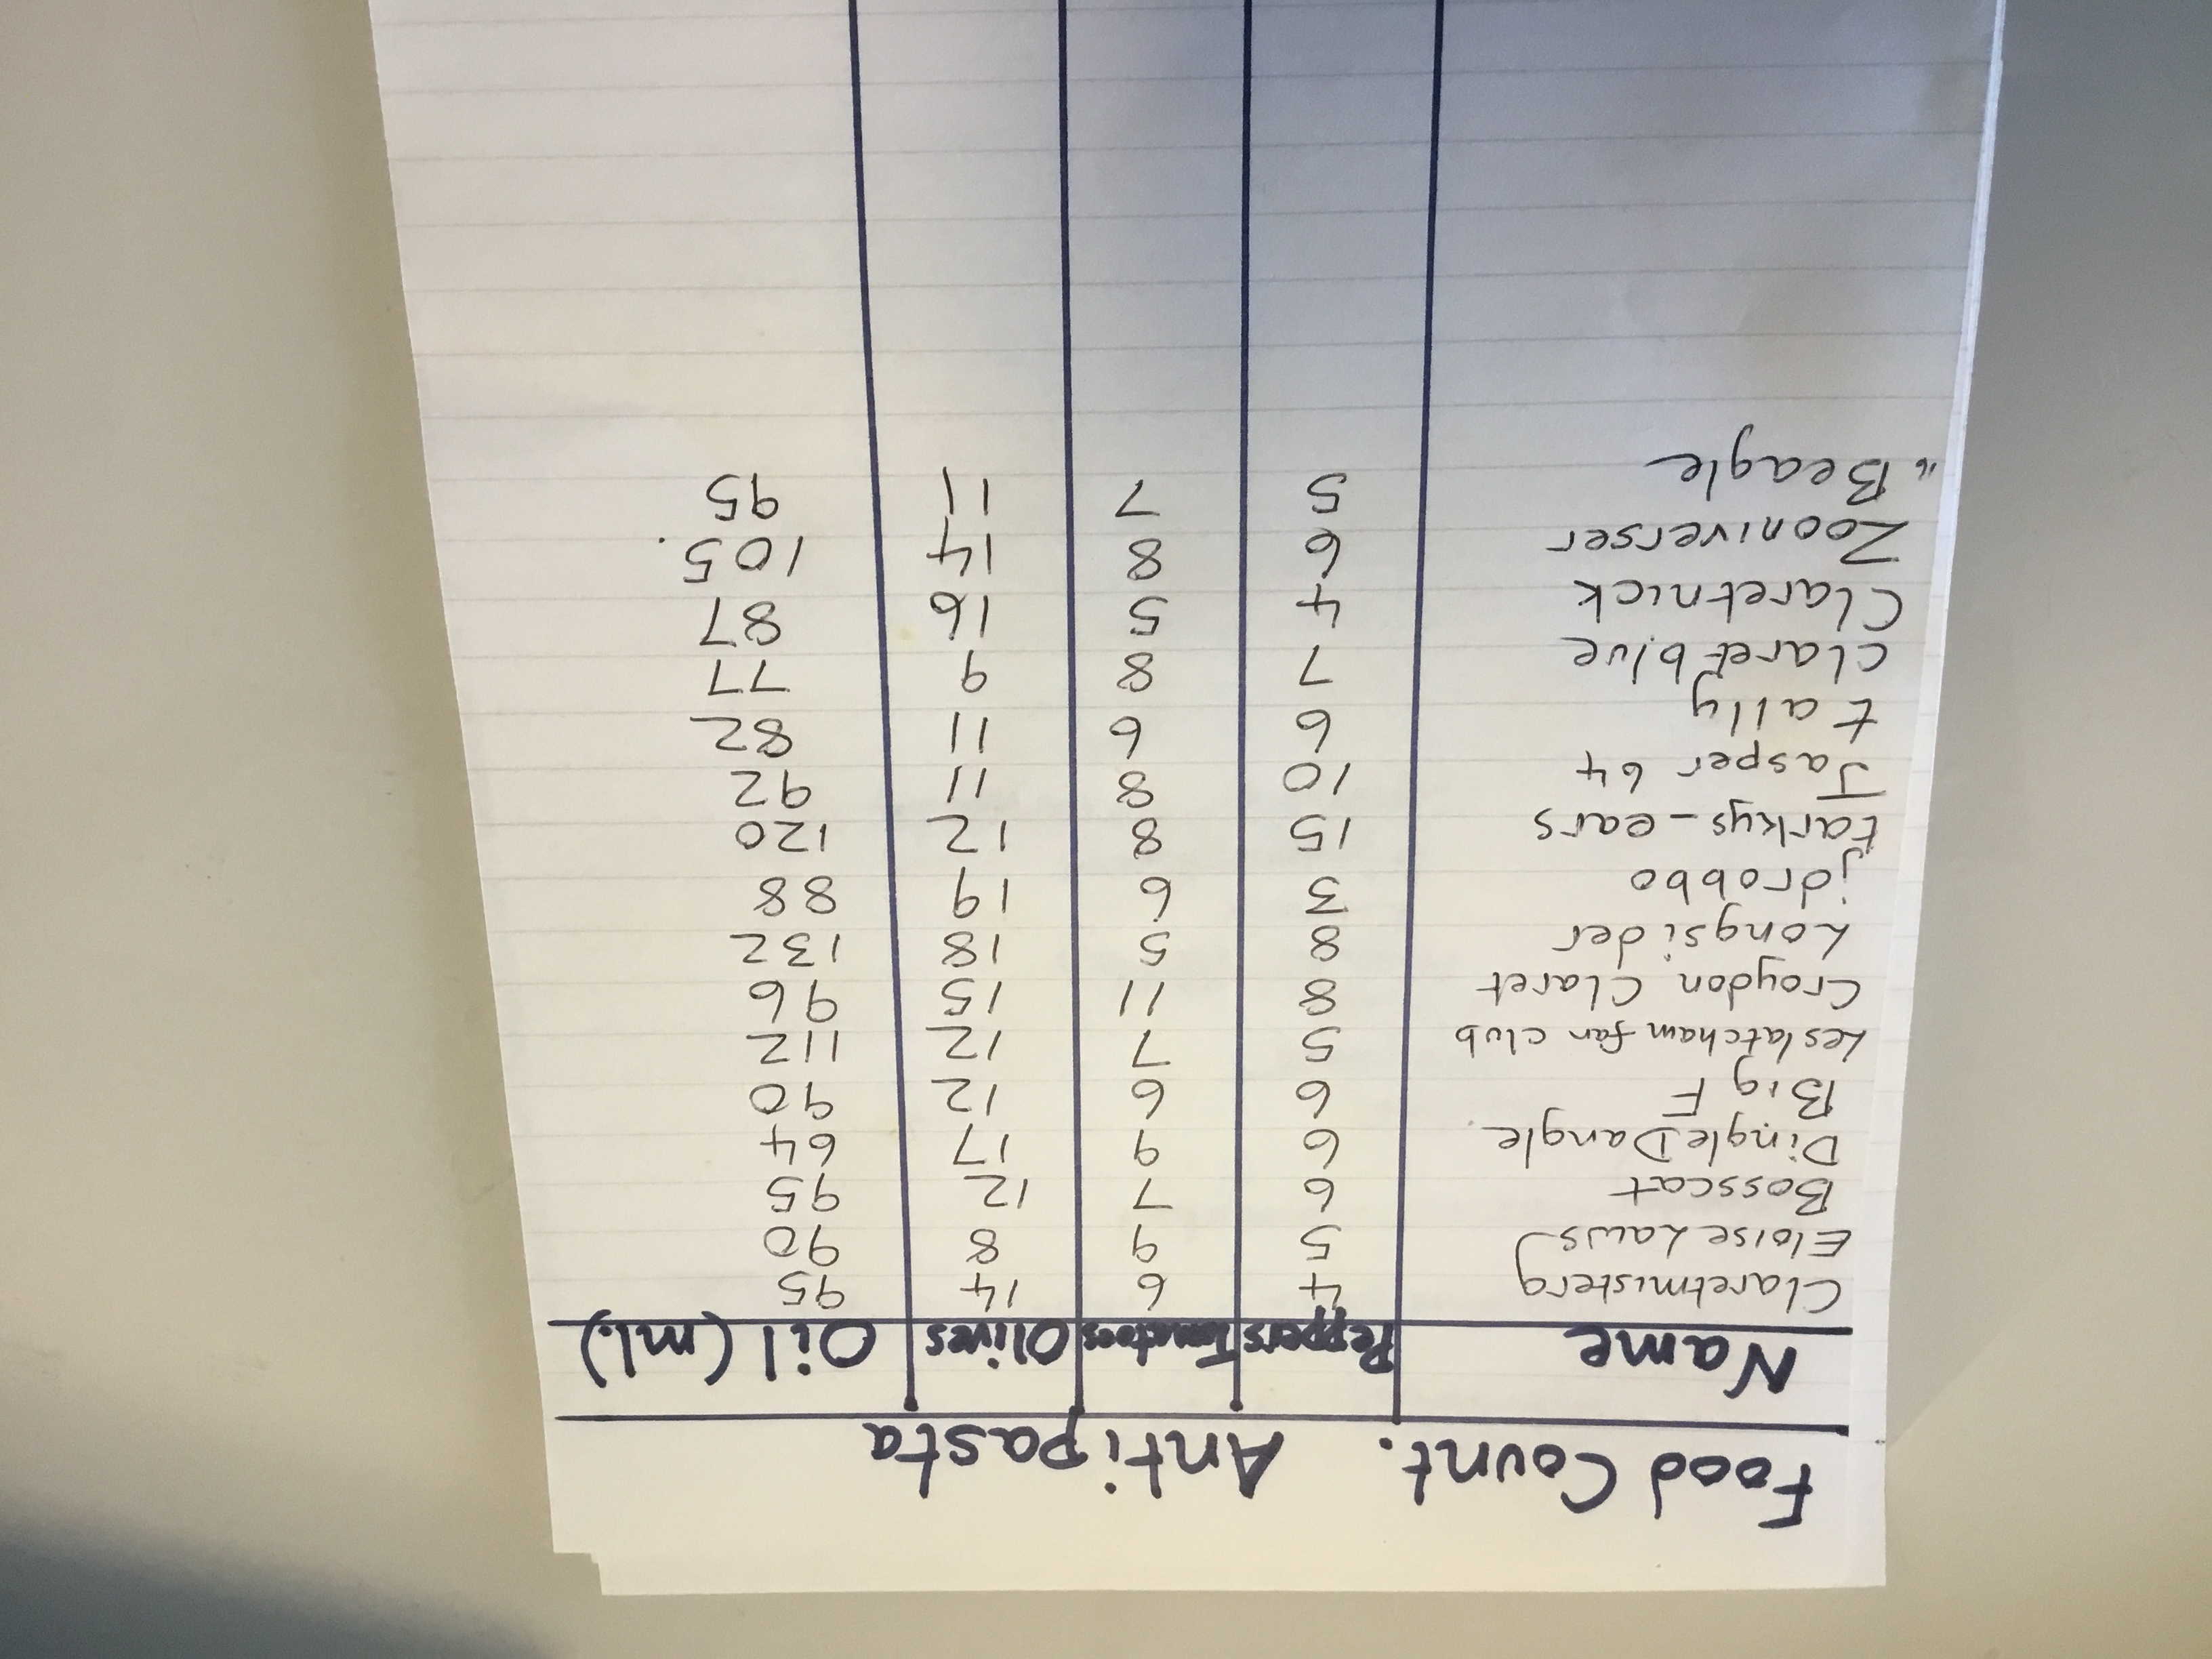 Food Count. Antipasta
Name Peppers Tomatoes Olives Oil (ml.)
Claretmisterg 4 6 14 95
Eloise Laws 5 9 8 90
Bosscat 6 7 12 95
DingleDangle 6 9 17 64
Big F 6 6 12 90
Leslatcham fan club 5 7 12 112
Croydon Claret 8 11 15 96
Longsider 8 5 18 132
jdrobbo 3 6 19 88
tarkys-ears 15 8 12 120
Jasper 64 10 8 11 92
tally 6 6 11 82
claretblue 7 8 9 77
Claretnick 4 5 16 87
Zooniverser 6 8 14 105.
"Beagle 5 7 11 95